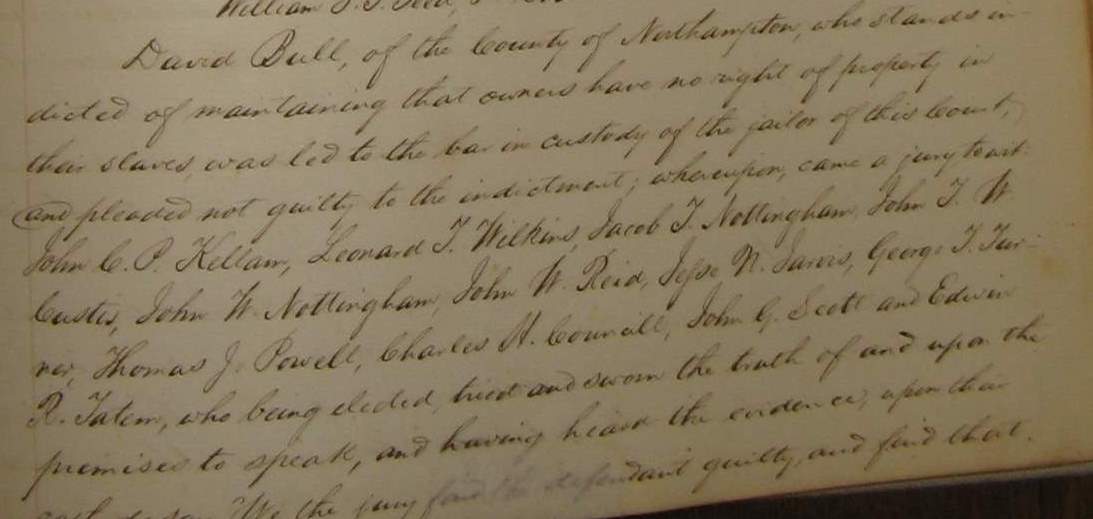 William
David Bull, of the County of Northampton, who stands in-
dicted of maintaining that owners have no right of property in
their slaves, was led to the bar in custody of the jailor of this Court,
and pleaded not guilty to the indictment; whereupon, came a jury to wit:
John C. P. Kellam, Leonard T. Wilkins, Jacob T. Nottingham, John T. W.
Custis, John W. Nottingham, John W. Reid, Jesse N. Jarvis, George T. Tur-
ner, Thomas J. Powell, Charles H. Councill, John G. Scott and Edwin
R. Tatem, who being elected, tried and sworn the truth of and upon the
premises to speak, and having heard the evidence, upon their
We the jury find the defendant guilty, and find that